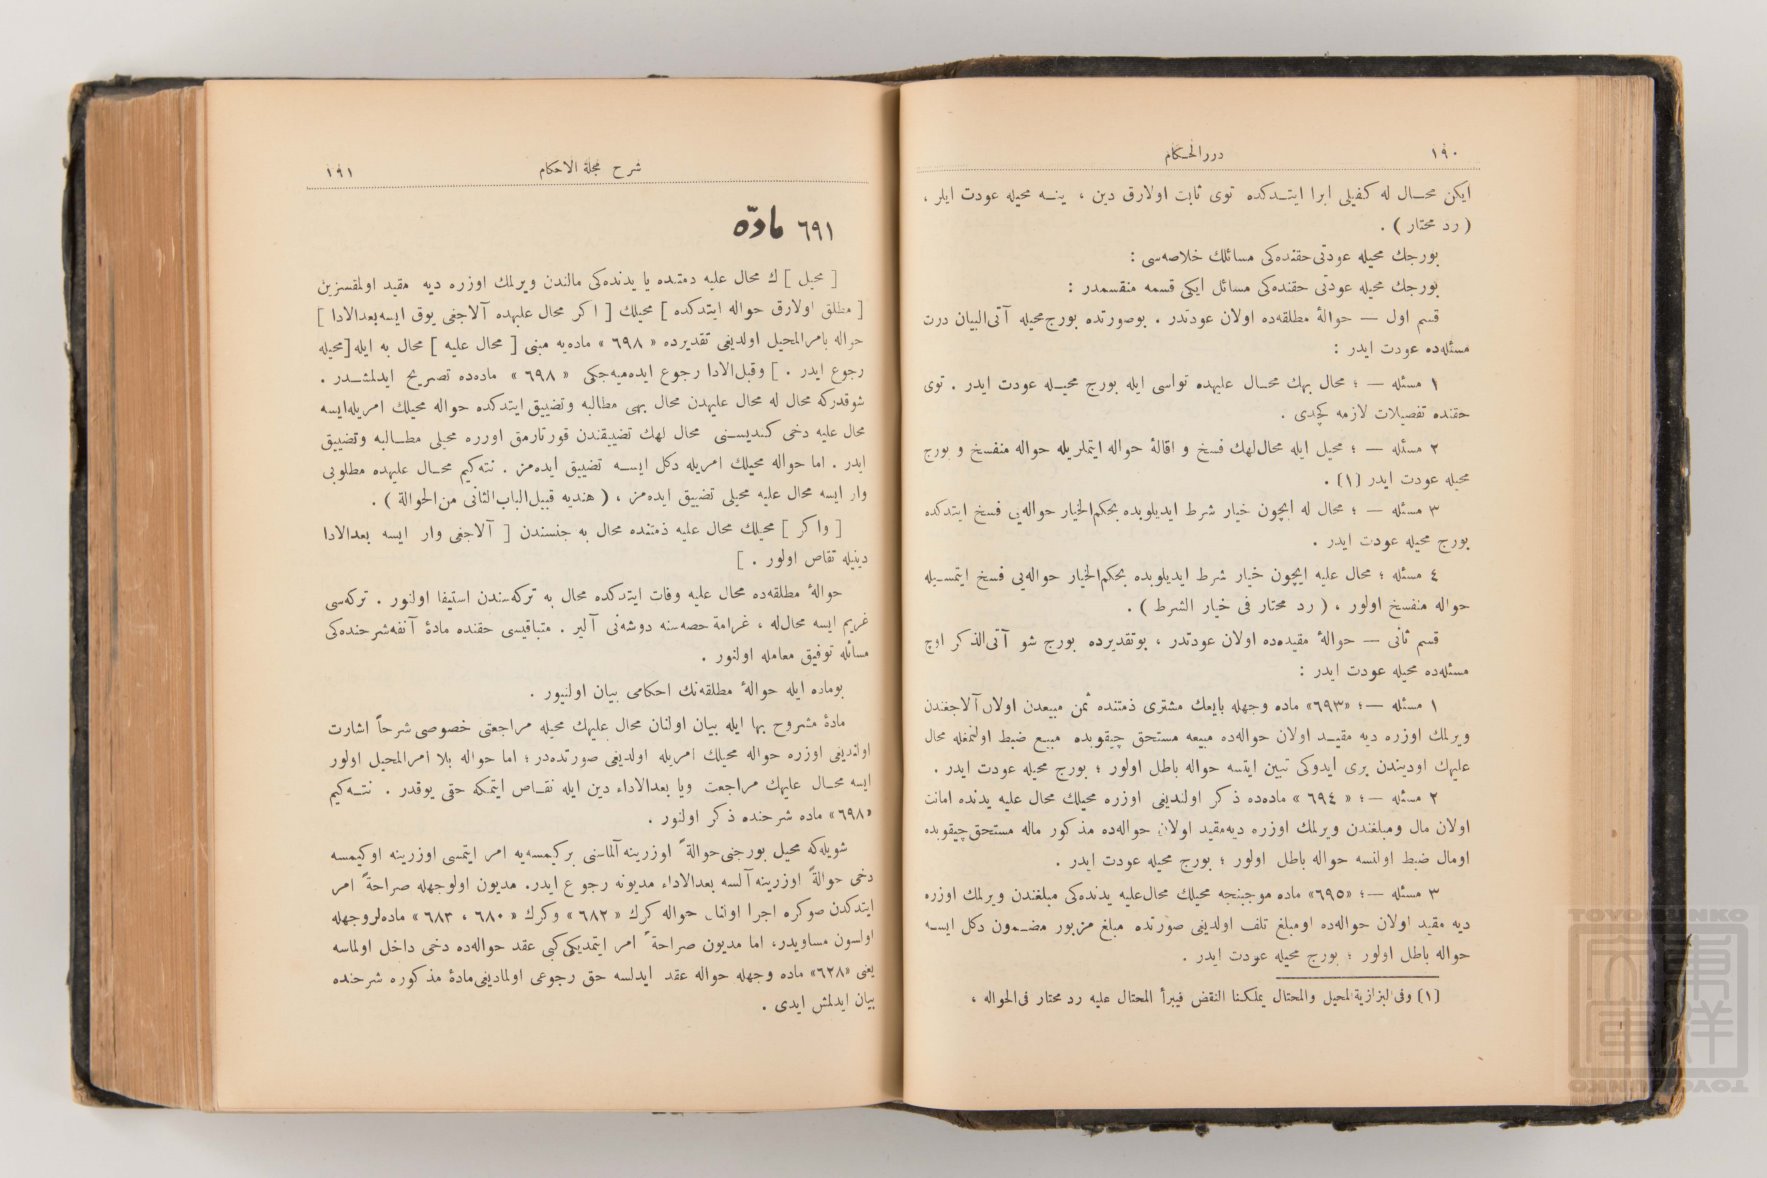 ١٩٠
دررالحكام
ايكن محال له كفيلى ابرا ايتدكده توى ثابت اولارق دين ، ينه محيله عودت ايلر ،
( رد مختار ) .
بورجك محيله عودتى حقنده‌كى مسائلك خلاصه‌سى :
بورجك محيله عودتى حقنده‌كى مسائل ايكى قسمه منقسمدر :
قسم اول — حوالۀ مطلقه‌ده اولان عودتدر . بوصورتده بورج محيله آتى‌البيان درت
مسئله‌ده عودت ايدر :
١ مسئله — ؛ محال بهك محال عليهده تواسى ايله بورج محيله عودت ايدر . توى
حقنده تفصيلات لازمه كچدى .
٢ مسئله — ؛ محيل ايله محال‌لهك فسخ و اقالۀ حواله ايتملريله حواله منفسخ و بورج
محيله عودت ايدر (١) .
٣ مسئله — ؛ محال له ايچون خيار شرط ايديلوبده بحكم‌الخيار حواله‌يى فسخ ايتدكده
بورج محيله عودت ايدر .
٤ مسئله ؛ محال عليه ايچون خيار شرط ايديلوبده بحكم‌الخيار حواله‌يى فسخ ايتمسيله
حواله منفسخ اولور ، ( رد مختار فى خيار الشرط ) .
قسم ثانى — حوالۀ مقيده‌ده اولان عودتدر ، بوتقديرده بورج شو آتى‌الذكر اوچ
مسئله‌ده محيله عودت ايدر :
١ مسئله —؛ «٦٩٣» ماده وجهله بايعك مشترى ذمتنده ثمن مبيعدن اولان آلاجغندن
ويرلمك اوزره ديه مقيد اولان حواله‌ده مبيعه مستحق چيقوبده مبيع ضبط اولنمغله محال
عليهك اوديندن برى ايدوكى تبين ايتسه حواله باطل اولور ؛ بورج محيله عودت ايدر .
٢ مسئله —؛ « ٦٩٤ » ماده‌ده ذكر اولنديغى اوزره محيلك محال عليه يدنده امانت
اولان مال ومبلغندن ويرلمك اوزره ديه‌مقيد اولان حواله‌ده مذكور ماله مستحق‌چيقوبده
اومال ضبط اولنسه حواله باطل اولور ؛ بورج محيله عودت ايدر .
٣ مسئله —؛ «٦٩٥» ماده موجبنجه محيلك محال‌عليه يدنده‌كى مبلغندن ويرلمك اوزره
ديه مقيد اولان حواله‌ده اومبلغ تلف اولديغى صورتده مبلغ مزبور مضمون دكل ايسه
حواله باطل اولور ؛ بورج محيله عودت ايدر .
(١) وفى‌البزازية‌المحيل والمحتال يملكنا النقض فيبرأ المحتال عليه رد مختار فى‌الحواله ،
شرح مجلة الاحكام
١٩١
٦٩١ مادّه
[ محيل ] ك محال عليه دمتنده يا يدنده‌كى مالندن ويرلمك اوزره ديه مقيد اولمقسزين
[ مطلق اولارق حواله ايتدكده ] محيلك [ اكر محال عليهده آلاجغى يوق ايسه‌بعدالادا ]
حواله بامرالمحيل اولديغى تقديرده « ٦٩٨ » ماده‌يه مبنى [ محال عليه ] محال به ايله[محيله
رجوع ايدر . ] وقبل‌الادا رجوع ايده‌ميه‌جكى « ٦٩٨ » ماده‌ده تصريح ايدلمشدر .
شوقدركه محال له محال عليهدن محال بهى مطالبه وتضييق ايتدكده حواله محيلك امريله‌ايسه
محال عليه دخى كنديسنى محال لهك تضييقندن قورتارمق اورره محيلى مطالبه وتضييق
ايدر . اما حواله محيلك امريله دكل ايسه تضييق ايده‌مز . نته‌كيم محال عليهده مطلوبى
وار ايسه محال عليه محيلى تضييق ايده‌مز ، ( هنديه قبيل‌الباب‌الثانى من‌الحوالة ) .
[ واكر ] محيلك محال عليه ذمتنده محال به جنسندن [ آلاجغى وار ايسه بعدالادا
دينيله تقاص اولور . ]
حوالۀ مطلقه‌ده محال عليه وفات ايتدكده محال به تركه‌سندن استيفا اولنور . تركه‌سى
غريم ايسه محال‌له ، غرامة حصه‌سنه دوشه‌نى آلير . متباقيسى حقنده مادۀ آنفه‌شرحنده‌كى
مسائله توفيق معامله اولنور .
بوماده ايله حوالۀ مطلقه‌نك احكامى بيان اولنيور .
مادۀ مشروح بها ايله بيان اولنان محال عليهك محيله مراجعتى خصوصى شرحاً اشارت
اولنديغى اوزره حواله محيلك امريله اولديغى صورتده‌در ؛ اما حواله بلا امرالمحيل اولور
ايسه محال عليهك مراجعت ويا بعدالاداء دين ايله تقاص ايتمكه حقى يوقدر . نته‌كيم
«٦٩٨» ماده شرحنده ذكر اولنور .
شويله‌كه محيل بورجنى‌حوالةً اوزرينه‌آلماسنى بركيمسه‌يه امر ايتمسى اوزرينه اوكيمسه
دخى حوالةً اوزرينه آلسه بعدالاداء مديونه رجوع ايدر. مديون اولوجهله صراحةً امر
ايتدكدن صوكره اجرا اولنان حواله كرك « ٦٨٢ » وكرك « ٦٨٠ ، ٦٨٣ » ماده‌لروجهله
اولسون مساويدر، اما مديون صراحةً امر ايتمديكى‌كبى عقد حواله‌ده دخى داخل اولماسه
يعنى «٦٢٨» ماده وجهله حواله عقد ايدلسه حق رجوعى اولماديغى‌مادۀ مذكوره شرحنده
بيان ايدلمش ايدى .
TOYO BUNKO
東洋文庫
TOYO BUNKO